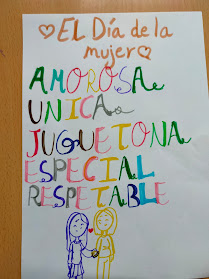 EL Día de la
mujer
AMOROSA
UNICA
JUGUETONA
ESPECIAL
RESPETABLE